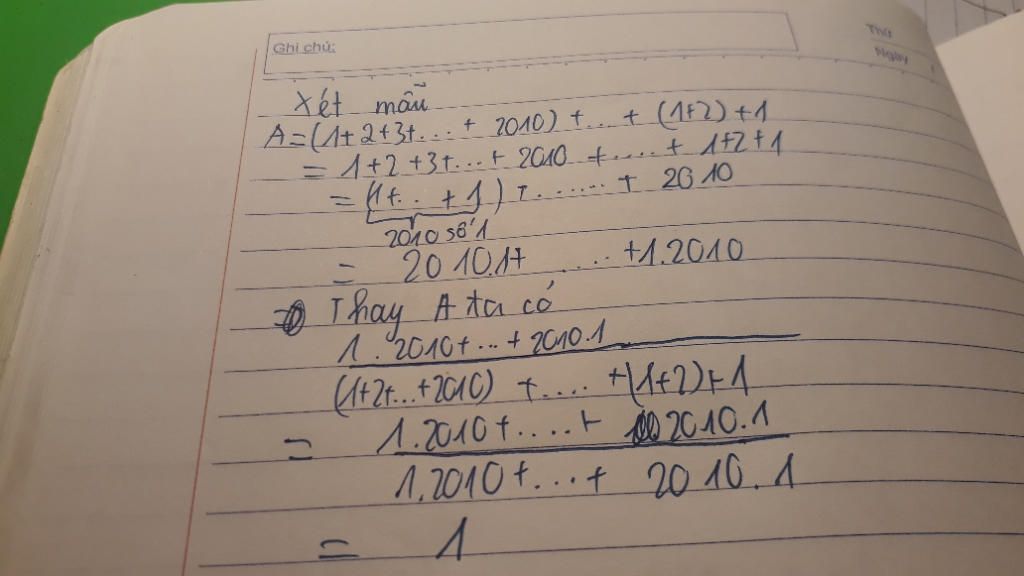 Ghi chú:
Thứ
Ngày
Xét mẫu
A=(1+2+3+...+ 2010) +..+ (1+2)+1
= 1+2+3+...+ 2010 +....+ 1+2+1
= (1+.. +1) +.......+ 2010
2010 số 1
= 2010.1+ ....+1.2010
Thay A ta có
1.2010+...+2010.1
(1+2+...+2010) +....+(1+2)+1
= 1.2010+....+ 2010.1
1.2010+...+ 2010.1
= 1